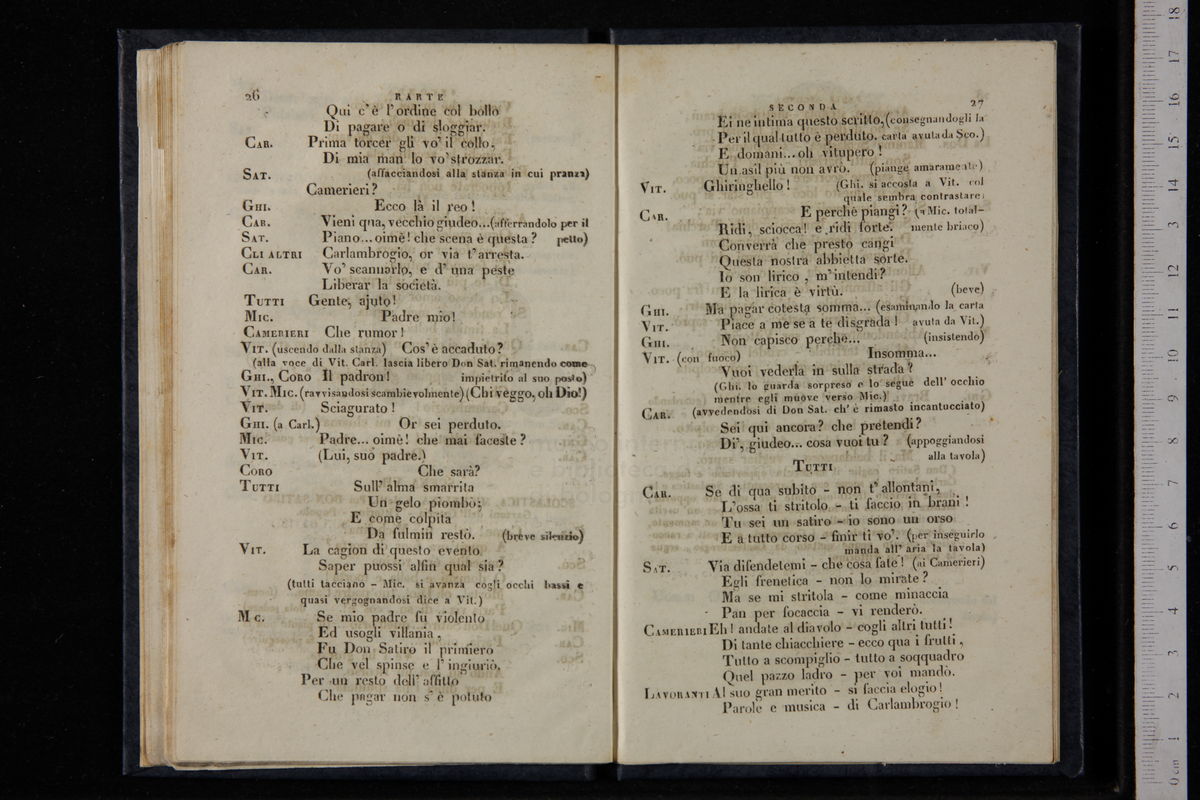 26 RARTE
Qui c'è l'ordine col bollo
Di pagare o di sloggiar.
CAR. Prima torcer gli vo' il collo,
Di mia man lo vo' strozzar.
SAT. (affacciandosi alla stanza in cui pranza)
Camerieri?
GHI. Ecco là il reo!
CAR. Vieni qua, vecchio giudeo...(afferrandolo per il
SAT. Piano... oimè! che scena è questa? petto)
CLI ALTRI Carlambrogio, or via t'arresta.
CAR. Vo' scannarlo, e d'una peste
Liberar la società.
TUTTI Gente, ajuto!
MIC. Padre mio!
CAMERIERI Che rumor!
VIT. (uscendo dalla stanza) Cos'è accaduto?
(alla voce di Vit. Carl. lascia libero Don Sat. rimanendo come
GHI., CORO Il padron! impietrito al suo posto)
VIT. MIC. (ravvisandosi scambievolmente) (Chi veggo, oh Dio!)
VIT. Sciagurato!
GHI. (a Carl.) Or sei perduto.
MIC. Padre... oimè! che mai faceste?
VIT. (Lui, suo padre.)
CORO Che sarà?
TUTTI Sull'alma smarrita
Un gelo piombò;
E come colpita
Da fulmin restò. (breve silenzio)
VIT. La cagion di questo evento
Saper puossi alfin qual sia?
(tutti tacciano - Mic. si avanza cogli occhi bassi e
quasi vergognandosi dice a Vit.)
M C. Se mio padre fu violento
Ed usogli villania,
Fu Don Satiro il primiero
Che vel spinse e l'ingiuriò,
Per un resto dell'affitto
Che pagar non s'è potuto
SECONDA 27
Ei ne intima questo scritto,(consegnandogli la
Per il qual tutto è perduto. carta avuta da Sco.)
E domani... oh vitupero!
Un asil più non avrò. (piange amaramente)
VIT. Ghiringhello! (Ghi. si accosta a Vit. col
quale sembra contrastare)
CAR. E perchè piangi? (a Mic. total-
Ridi, sciocca! e ridi forte. mente briaco)
Converrà che presto cangi
Questa nostra abbietta sorte.
Io son lirico, m'intendi?
E la lirica è virtù. (beve)
GHI. Ma pagar cotesta somma... (esaminando la carta
VIT. Piace a me se a te disgrada! avuta da Vit.)
GHI. Non capisco perchè... (insistendo)
VIT. (con fuoco) Insomma...
Vuoi vederla in sulla strada?
(Ghi. lo guarda sorpreso e lo segue dell'occhio
mentre egli muove verso Mic.)
CAR. (avvedendosi di Don Sat. ch'è rimasto incantucciato)
Sei qui ancora? che pretendi?
Di', giudeo... cosa vuoi tu? (appoggiandosi
alla tavola)
TUTTI
CAR. Se di qua subito - non t'allontani,
L'ossa ti stritolo - ti faccio in brani!
Tu sei un satiro - io sono un orso
E a tutto corso - finir ti vo'. (per inseguirlo
manda all'aria la tavola)
SAT. Via difendetemi - che cosa fate! (ai Camerieri)
Egli frenetica - non lo mirate?
Ma se mi stritola - come minaccia
Pan per focaccia - vi renderò.
CAMERIERI Eh! andate al diavolo - cogli altri tutti!
Di tante chiacchiere - ecco qua i frutti,
Tutto a scompiglio - tutto a soqquadro
Quel pazzo ladro - per voi mandò.
LAVORANTI Al suo gran merito - si faccia elogio!
Parole e musica - di Carlambrogio!
0 cm 1 2 3 4 5 6 7 8 9 10 11 12 13 14 15 16 17 18